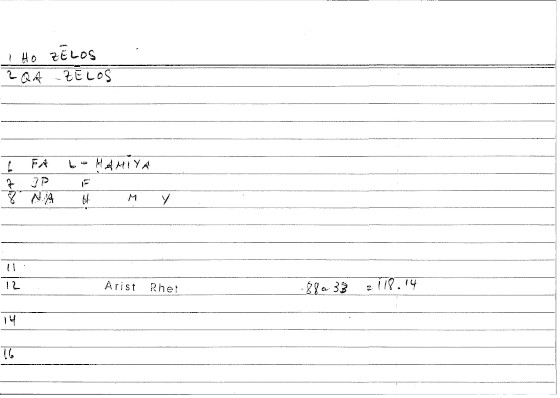 1 Ho ZĒLOS
2 QA - ZĒLOS
6 FA L-ḤAMĪYA
7 JP F
8 NA Ḥ M Y
11
12 Arist Rhet 88a 33 = 118.14
14
16